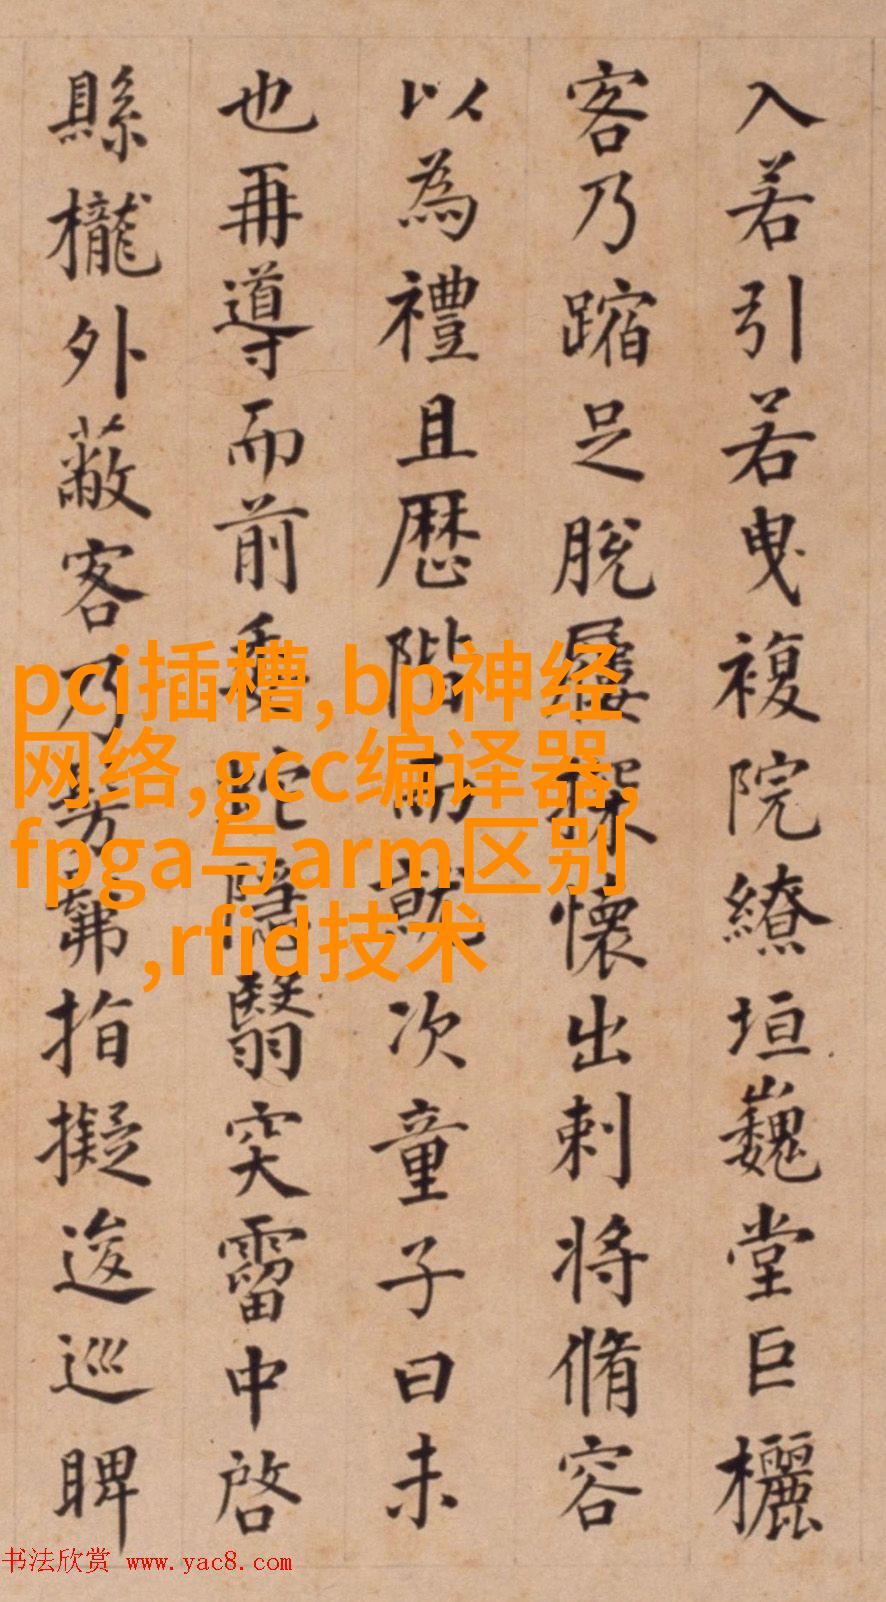 入若引若曳複院繚垣巍堂巨欐
客乃蹜足脫屨探懷出刺将脩容
以為禮且歴階而就次童子曰未
也再導而前委蛇隱翳突霤中啓
縣櫳外蔽客乃髣髴指擬逡巡睥
pci插槽,bp神经
网络,gcc编译器,
fpga与arm区别
,rfid技术
书法欣赏 www.yac8.com